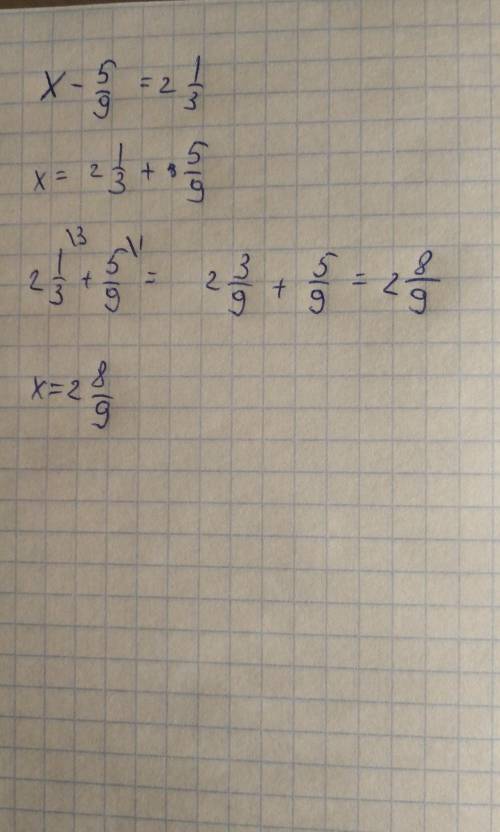 x - 5/9 = 2 1/3
x = 2 1/3 + 5/9
2 1/3 \3 + 5/9 \1 = 2 3/9 + 5/9 = 2 8/9
x = 2 8/9